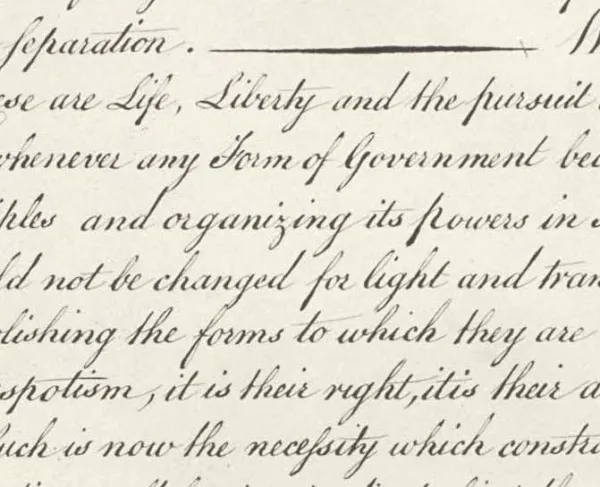 separation . ———— W
ese are Life, Liberty and the pursuit
whenever any Form of Government bec
iples and organizing its powers in s
ld not be changed for light and tran
olishing the forms to which they are
spotism, it is their right, it is their d
uch is now the necessity which constra